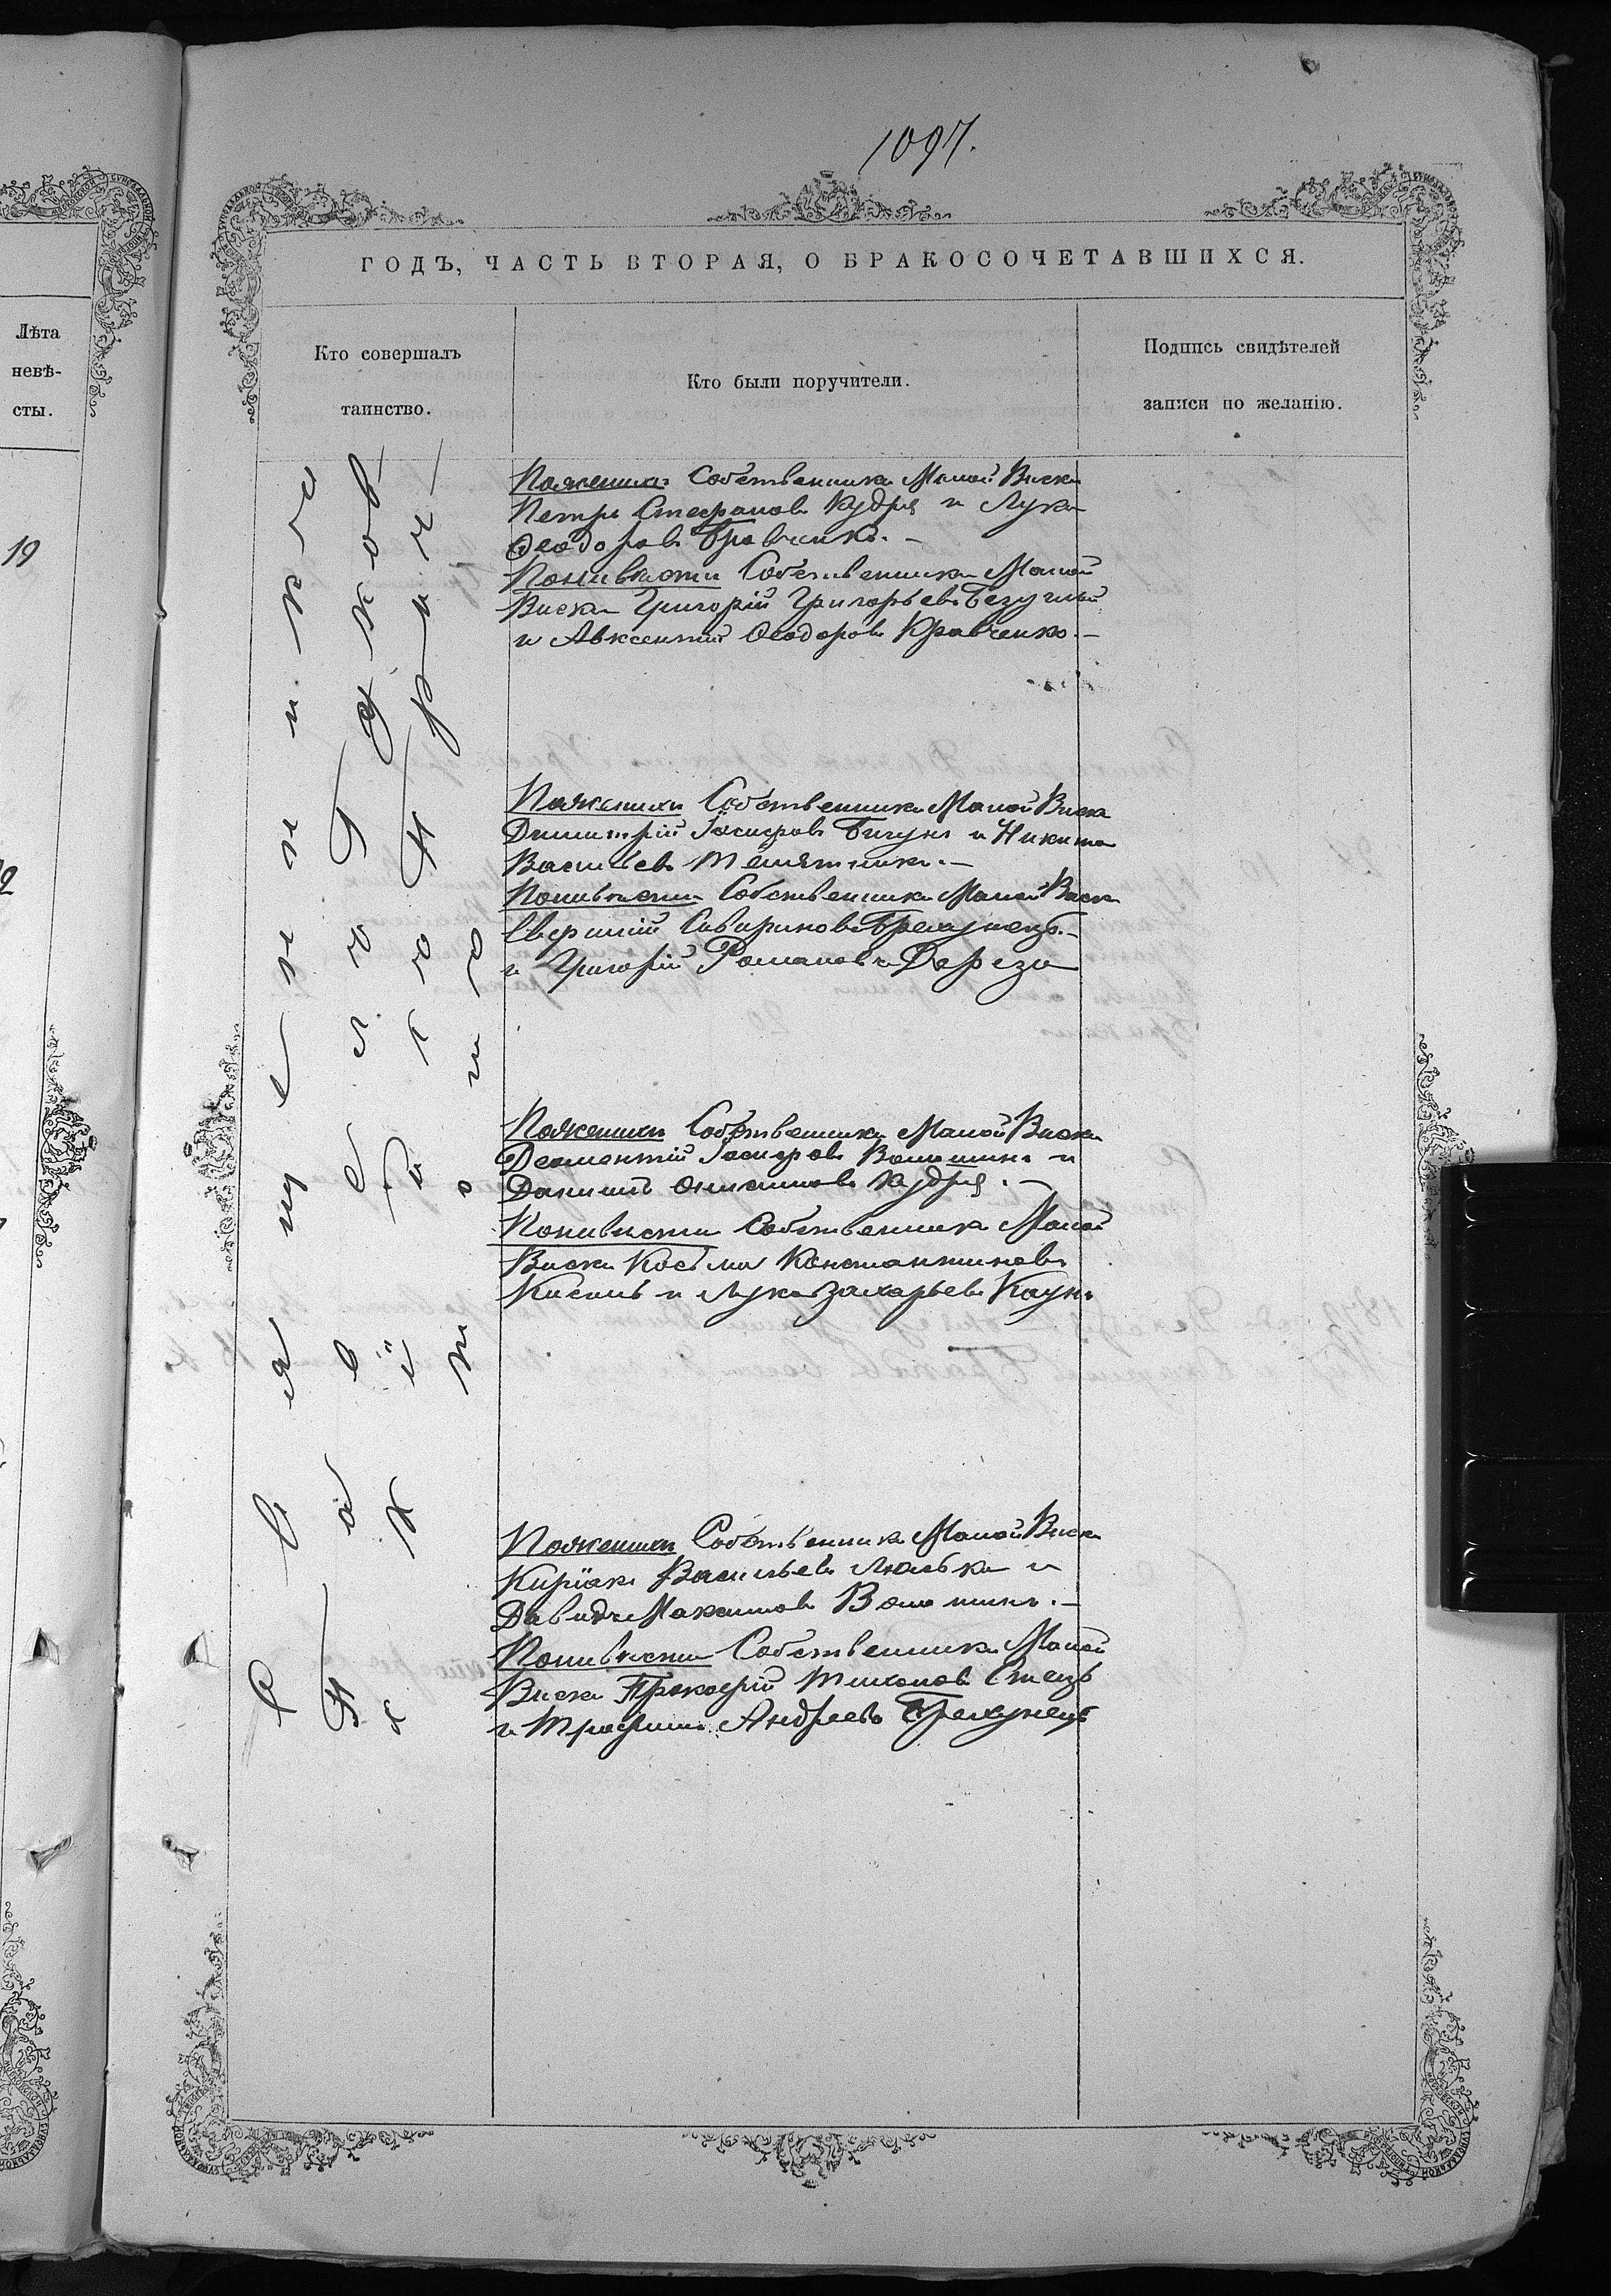 1097.
ГОДЪ, ЧАСТЬ ВТОРАЯ, О БРАКОСОЧЕТАВШИХСЯ.
Лѣта
невѣ-
сты.
19
Кто совершалъ
таинство.
Кто были поручители.
Подпись свидѣтелей
записи по желанію.
Священникъ
Павелъ
Пожениха Собственники Малой Виски
Петръ Стефановъ Кудря и Лука
Ѳеодоровъ
Поневѣсти Собственники Малой
Виски Григорій Григорьевъ
и Авксентій Ѳеодоровъ Кравченко.–
Поженихи Собственники Малой Виски
Димитрій Іосифовъ Бигунъ и Никита
Васильевъ Телятникъ.–
Поневѣсти Собственники Малой Виски
Севириновъ Брехунецъ–
и Григорій Романовъ Дереза
Поженихи Собственники Малой Виски
Дементій Іосифовъ Волошинъ и
Даніилъ Онисимовъ Кудря.–
Поневѣсти Собственники Малой
Виски Косьма Константиновъ
Кисиль и Лука Захарьевъ Каунъ
Поженихи Собственники Малой Виски
Киріакъ Васильевъ Люлька и
Давидъ Максимовъ Волошинъ.–
Поневѣсти Собственники Малой
Виски Прокофій Тихоновъ Стецъ
и Трофимъ Андреевъ Брехунецъ